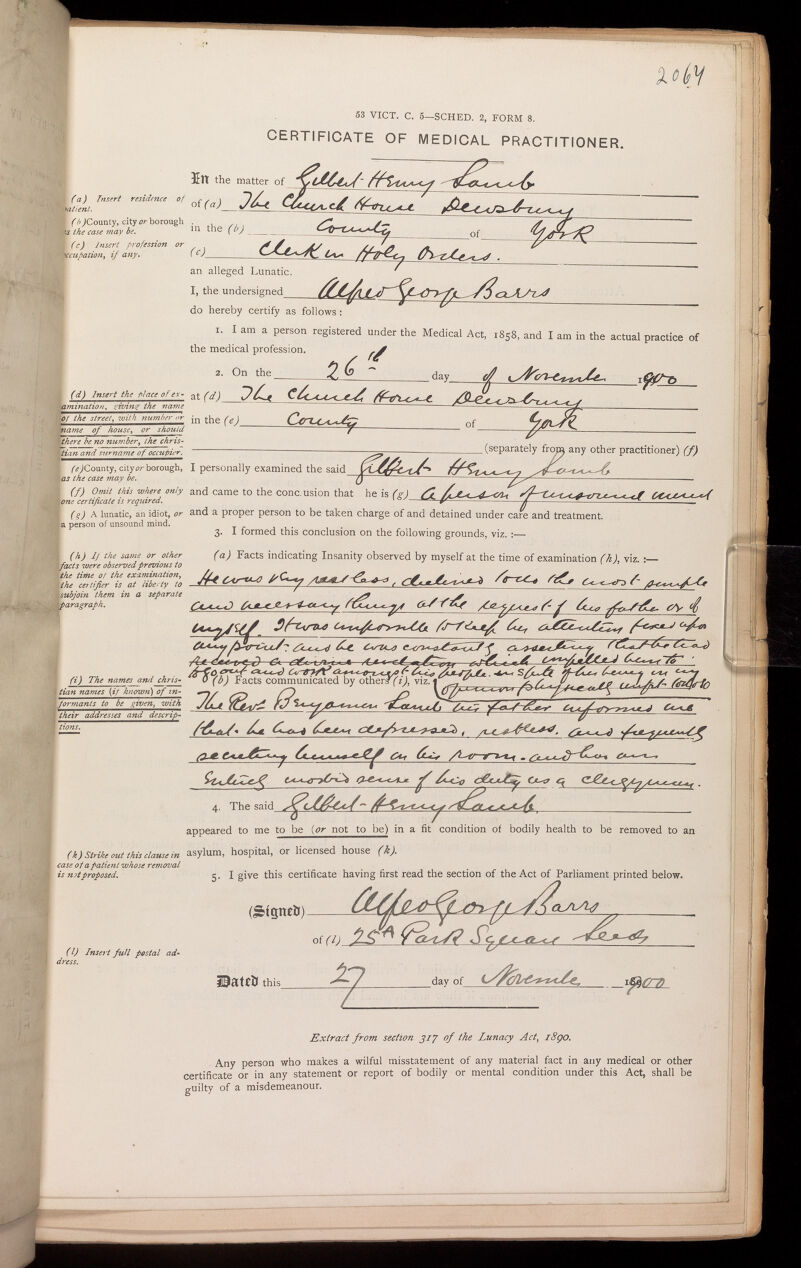 2064
53 VICT. C. 5—SCHED. 2, FORM 8.
CERTIFICATE OF MEDICAL PRACTITIONER.
In the matter of Gilbert Henry Lamb
(a) Insert residence of patient.
of (a) The Church House Dewsbury
(b) County, city or borough as the case may be.
in the (b) County of York
(c) Insert profession or occupation, if any.
(c) Clerk in Holy Orders.
an alleged Lunatic.
I, the undersigned Alfred George Barrs
do hereby certify as follows:
1. I am a person registered under the Medical Act, 1858, and I am in the actual practice of
the medical profession.
2. On the 26th day of November 1900
(d) Insert the place of examination, giving the name of the street, with number or name of house, or should there be no number, the christian and surname of occupier.
at (d) The Church House Dewsbury
in the (e) County of York
(separately from any other practitioner) (f)
(e) County, city or borough, as the case may be.
I personally examined the said Gilbert Henry Lamb
(f) Omit this where only one certificate is required.
and came to the conclusion that he is (g) a person of unsound mind
(g) A lunatic, an idiot, or a person of unsound mind.
and a proper person to be taken charge of and detained under care and treatment.
3. I formed this conclusion on the following grounds, viz.:—
(h) If the same or other facts were observed previous to the time of the examination, the certifier is at liberty to subjoin them in a separate paragraph.
(a) Facts indicating Insanity observed by myself at the time of examination (h), viz.:—
He was very restless, declined to do the most simple
and necessary things at the request of his father or of
myself. It was impossible to keep his attention fixed upon
any point: and he was constantly asserting that he had
received a divine revelation which impelled him to
to go out and work amongst his people in spite of his being in my
opinion physically unfit to do so
(i) The names and christian names (if known) of informants to be given, with their addresses and descriptions.
(b) Facts communicated by others (i), viz.
The Revd. Benjamin Lamb his father informed me
that he had been depressed, restless, and frequently
secreting himself in his room. and has an
entirely morbid sense of his duty as a clergyman.
4. The said Gilbert Henry Lamb
appeared to me to be (or not to be) in a fit condition of bodily health to be removed to an
(k) Strike out this clause in case of a patient whose removal is not proposed.
asylum, hospital, or licensed house (k).
5. I give this certificate having first read the section of the Act of Parliament printed below.
(Signed) Alfred George Barrs
(l) Insert full postal address.
of (l) 25A Park Square Leeds
Dated this 27 day of November 1900
Extract from section 317 of the Lunacy Act, 1890.
Any person who makes a wilful misstatement of any material fact in any medical or other
certificate or in any statement or report of bodily or mental condition under this Act, shall be
guilty of a misdemeanour.